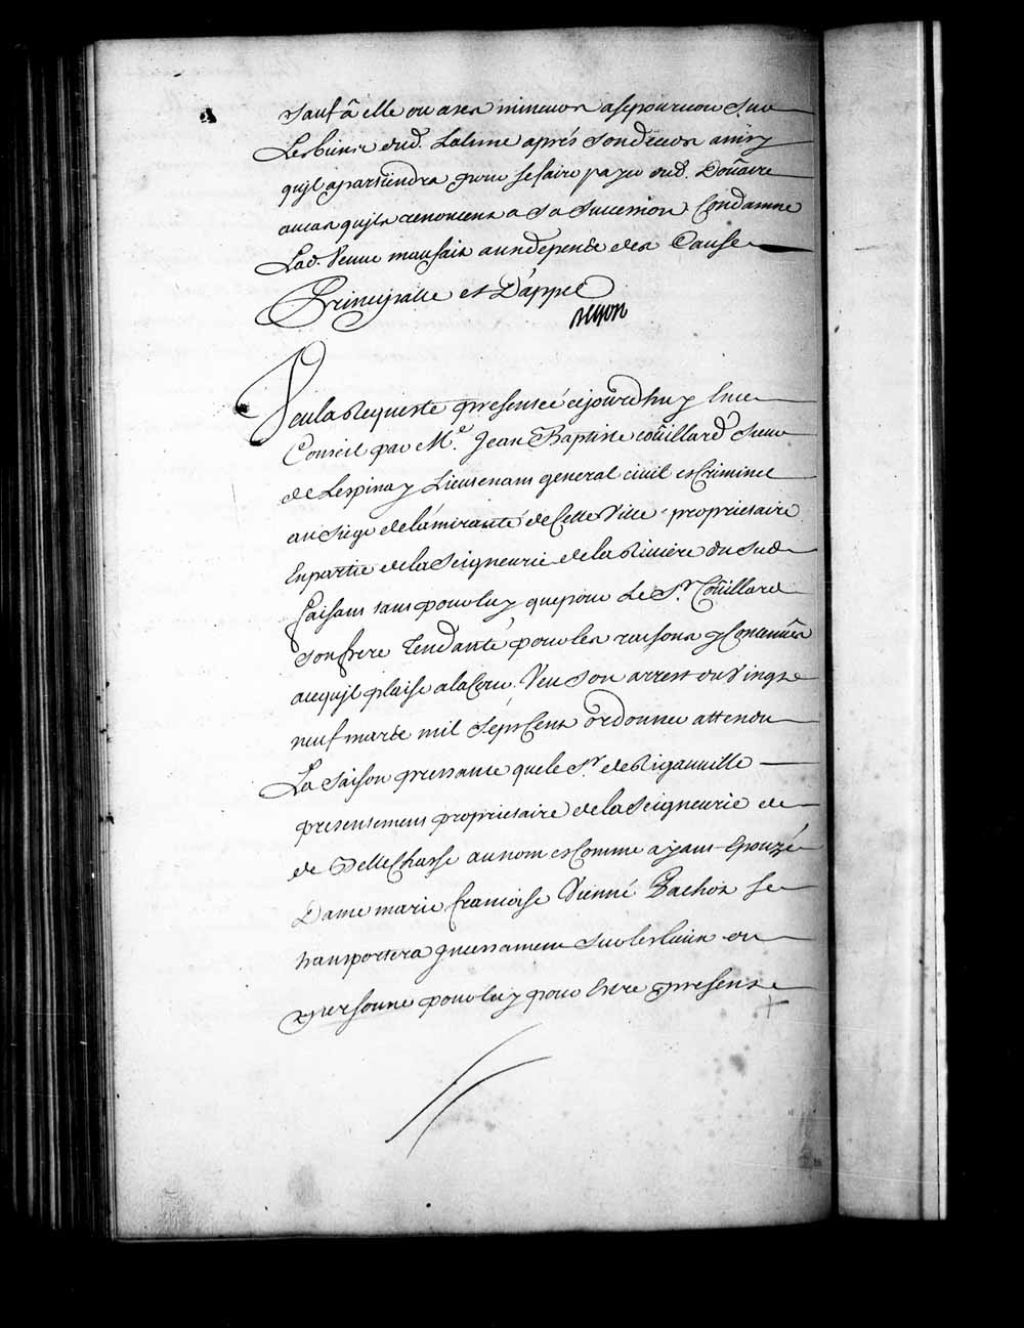 sauf a elle ou a ses mineurs a se pourvoir sur
Les biens dud. Lalime aprés son deceds ainsy
quil apartiendra pour se faire payer dud. Doüaire
au cas quils renoncent a sa succession Condamne
Lad. Veuve maufait aux depens des Cause
Principalle et D'appel
Begon
Veu la Requeste presenteé cejourd'huy en ce
Conseil par Me. Jean Baptiste coüillard Sieur
de Lespinay Lieutenant general civil et Criminel
au siege de l'amirauté de Cette Ville proprietaire
En partie de la Seigneurie de la Riviere du Sud
faisant tant pour luy que pour Le Sr. Coüillard
son frere Tendante pour les raisons y Contenuës
a ce quil plaise a la Cour. Veu son arrest du Vingt
neuf mars mil Sept Cent ordonner attendu
La saison pressante que le Sr. de Rigauville
presentement proprietaire de la Seigneurie de
de BelleChasse au nom et Comme ayant Epouzé
Dame marie francoise Vienné Pachot se
transportera incessament sur les lieux ou
personne pour luy pour Estre present